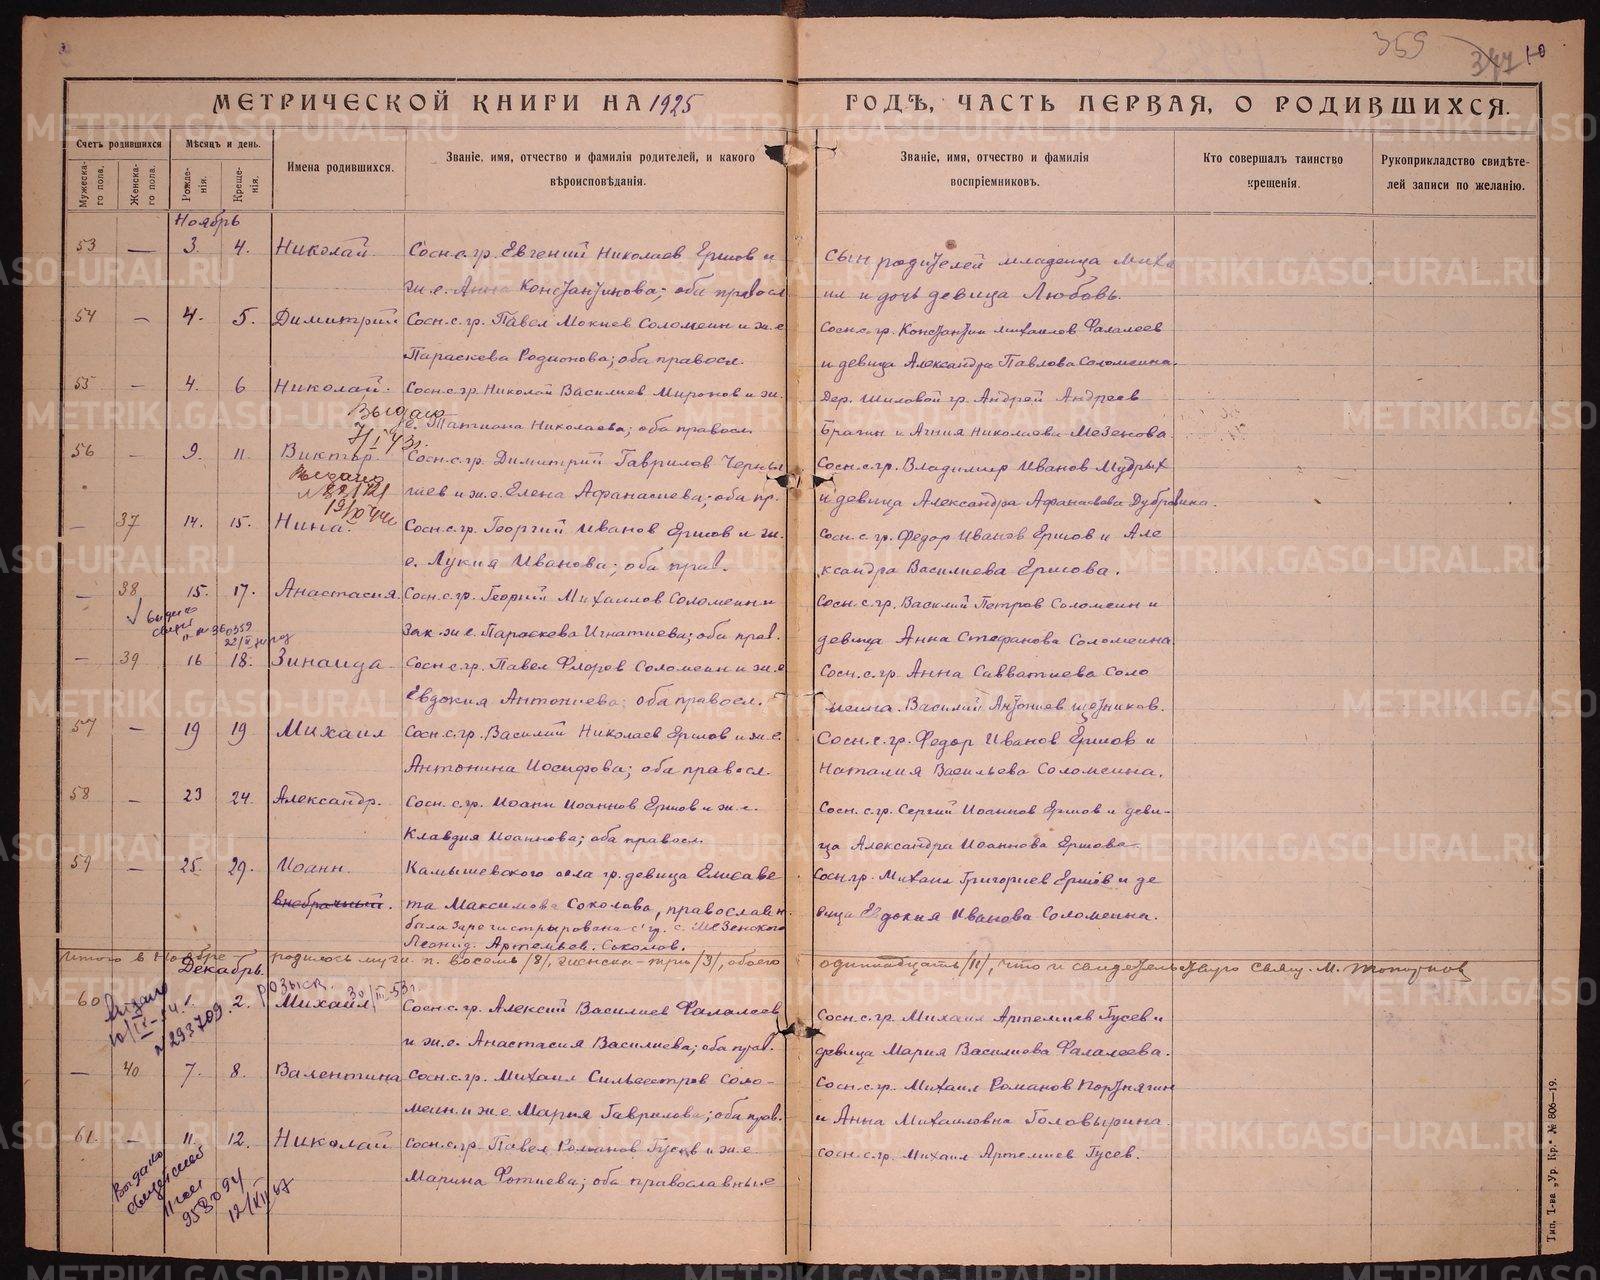 359
347
10
МЕТРИЧЕСКОЙ КНИГИ НА 1925 ГОДЪ, ЧАСТЬ ПЕРВАЯ, О РОДИВШИХСЯ.
Счетъ родившихся
Мѣсяцъ и день.
Имена родившихся.
Званіе, имя, отчество и фамилія родителей, и какого
вѣроисповѣданія.
Званіе, имя, отчество и фамилія
воспріемниковъ.
Кто совершалъ таинство
крещенія.
Рукоприкладство свидѣте-
лей записи по желанію.
Мужеска-
го пола.
Женска-
го пола.
Рожде-
нія.
Креще-
нія.
Ноябрь
53 — 3. 4. Николай. Сосн.с.гр. Евгений Николаев Ершов и
ж.е. Анна Константинова; оба правосл
Сын родителей младенца Миха
ил и дочь девица Любовь.
54 — 4. 5. Димитрий Сосн.с.гр. Павел Мокиев Соломеин и ж.е
Параскева Родионова; оба правосл.
Сосн.с.гр. Константин Михаилов Фалалеев
и девица Александра Павлова Соломеина.
55 — 4. 6 Николай. Сосн.с.гр. Николай Василиев Миронов и ж.
е. Татиана Николаева; оба правосл.
Выдано
7/I 43г.
Дер. Шиловой гр. Андрей Андреев
Брагин и Агния Николаева Мезенова.
56 — 9. 11. Виктор. Сосн.с.гр. Димитрий Гаврилов Черны
гаев и ж.е. Елена Афанасиева; оба пр.
Выдано
Сосн.с.гр. Владимир Иванов Мудрых
и девица Александра Афанасьева Дубровина.
— 37 14. 15. Нина. Сосн.с.гр. Георгий Иванов Ершов и ж.
е. Лукия Иванова; оба прав.
Сосн.с.гр. Федор Иванов Ершов и Але
ксандра Василиева Ершова.
— 38 15. 17. Анастасия. Сосн.с.гр. Георгий Михаилов Соломеин и
зак. ж.е. Параскева Игнатиева; оба прав.
Сосн.с.гр. Василий Петров Соломеин и
девица Анна Стефанова Соломеина
— 39 16 18. Зинаида Сосн.с.гр. Павел Флоров Соломеин и ж.е
Евдокия Антониева; оба правосл.
Сосн.с.гр. Анна Савватиева Соло
меина. Василий Антониев Щетников.
57 — 19 19 Михаил Сосн.с.гр. Василий Николаев Ершов и ж.е.
Антонина Иосифова; оба правосл.
Сосн.с.гр. Федор Иванов Ершов и
Наталия Васильева Соломеина.
58 — 23 24. Александр. Сосн.с.гр. Иоанн Иоаннов Ершов и ж.е.
Клавдия Иоаннова; оба правосл.
Сосн.с.гр. Сергий Иоаннов Ершов и деви-
ца Александра Иоаннова Ершова
59 — 25. 29. Иоанн. Камышевского села гр. девица Елисаве
внебрачный. та Максимова Соколова, православн.
была зарегистрирована с гр. с. Мезенского
Леонид. Артемьев. Соколов.
Сосн.гр. Михаил Григориев Ершов и де
вица Евдокия Иванова Соломеина.
Итого в Ноябре — родилось муж. п. восемь /8/, женска — три /3/, обоего
одиннадцать /11/, что и свидетельствую свящ. М. Топорков
Декабрь.
60 1. 2. Михаил Сосн.с.гр. Алексий Василиев Фалалеев
и ж.е. Анастасия Василиева; оба прав.
розыск. 30/III-53г.
Выдано
10/IX-54.
№293709.
Сосн.с.гр. Михаил Артемиев Гусев и
девица Мария Василиева Фалалеева.
— 40 7. 8. Валентина Сосн.с.гр. Михаил Сильвестров Соло-
меин. и ж.е Мария Гаврилова; оба прав.
Сосн.с.гр. Михаил Романов Портнягин
и Анна Михаиловна Головырина.
61. — 11. 12. Николай Сосн.с.гр. Павел Романов Гусев и ж.е
Марина Фотиева; оба православные
Сосн.с.гр. Михаил Артемиев Гусев.
Выдано
12/XII 67
Тип. Т-ва „Ур. Кр." № 806—19.
METRIKI.GASO-URAL.RU